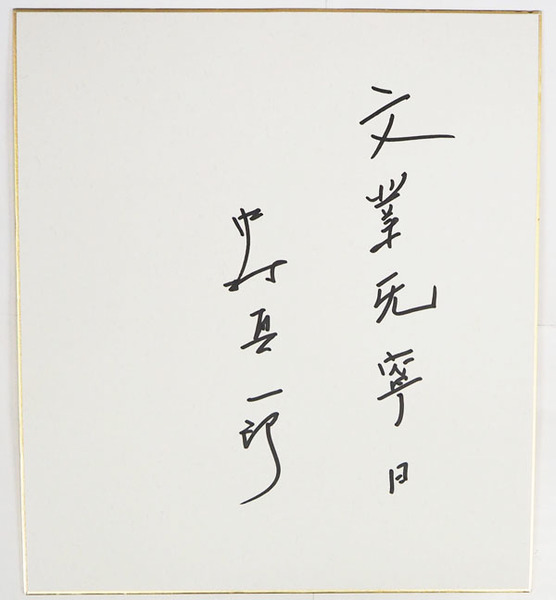 文業无寧日
中村真一郎